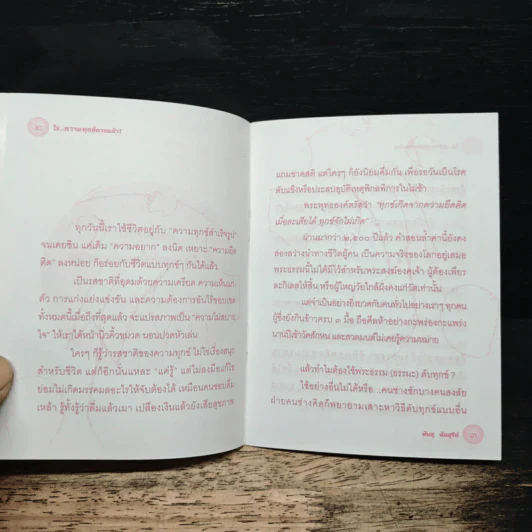 ทุกวันนี้เราใช้ชีวิตอยู่กับ "ความทุกข์สำเร็จรูป"
จนเคยชิน แค่เติม "ความอยาก" ลงนิด เหยาะ "ความยึด
ติด" ลงหน่อย ก็อร่อยกับชีวิตแบบทุกข์ๆ กันได้แล้ว
เป็นรสชาติที่อุดมด้วยความเครียด ความเห็นแก่
ตัว การแก่งแย่งแข่งขัน และความต้องการอันไร้ขอบเขต
ทั้งหมดนี้เมื่อถึงที่สุดแล้ว จะแปรสภาพเป็น "ความไม่สบาย
ใจ" ให้เราได้หน้านิ่วคิ้วขมวด นอนปวดหัวเล่น
ใครๆ ก็รู้ว่ารสชาติของความทุกข์ ไม่ใช่เรื่องสนุก
สำหรับชีวิต แต่ก็อีกนั่นแหละ "แค่รู้" แต่ไม่ลงมือแก้ไข
ย่อมไม่เกิดมรรคผลอะไรให้จับต้องได้ เหมือนคนชอบดื่ม
เหล้า รู้ทั้งรู้ว่าดื่มแล้วเมา เปลืองเงินแล้วยังเสียสุขภาพ
แถมขาดสติ แต่ใครๆ ก็ยังนิยมดื่มกัน เพื่อรอวันเป็นโรค
ตับแข็งหรือประสบอุบัติเหตุพิกลพิการในไม่ช้า
พระพุทธองค์ตรัสว่า "ทุกข์เกิดจากความยึดติด
เมื่อละเสียได้ ทุกข์จักไม่เกิด"
ผ่านมากว่า ๒,๕๐๐ ปีแล้ว คำสอนเหล่านี้ยังคง
ส่องสว่างนำทางชีวิตผู้คน เป็นความจริงของโลกอยู่เสมอ
พระธรรมนี้ไม่ได้มีไว้สำหรับพระสงฆ์องค์เจ้า ผู้ต้องเพียร
ละกิเลสให้สิ้น หรือผู้ใหญ่วัยใกล้ฝั่งคงแก่วัดเท่านั้น
แต่จำเป็นอย่างยิ่งยวดกับคนทั่วไปอย่างเราๆ ทุกคน
ผู้ซึ่งยังกินข้าวครบ ๓ มื้อ ถือศีลห้าอย่างกะพร่องกะแพร่ง
นานปีเข้าวัดสักหน และสวดมนต์ไม่เคยรู้ความหมาย
แล้วทำไมต้องใช้พระธรรม (ธรรมะ) ดับทุกข์ ?
ใช้อย่างอื่นไม่ได้หรือ...คนช่างซักบางคนสงสัย
ฝ่ายคนช่างคิดก็พยายามเสาะหาวิธีดับทุกข์แบบอื่น